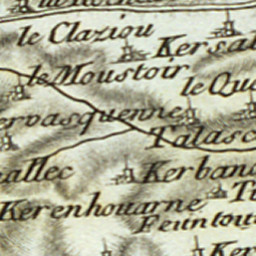 le Claziou
Kersal
le Moustoir
le Qu
ervasquenne
Talasc
allec
Kerband
Kerenhouarne
Ti
Feuntou
Ker